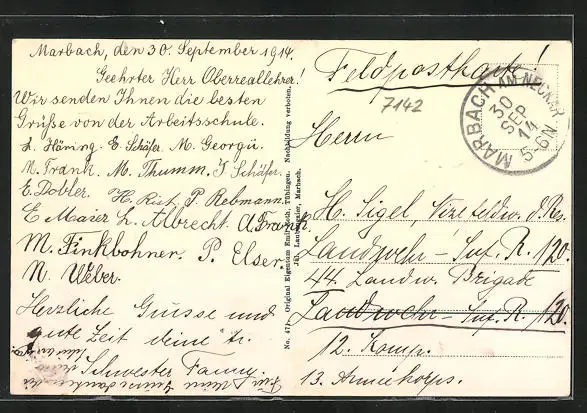 Marbach, den 30. September 1914.
Geehrter Herr Oberreallehrer!
Wir senden Ihnen die besten
Grüße von der Arbeitsschule.
L. Häring. E. Schäfer. M. Georgii.
M. Frank. M. Thumm. J. Schäfer.
E. Dobler. H. Rist. P. Rebmann.
E Maier L. Albrecht. A. Frank.
M. Finkbohner. P. Elser.
N. Weber.
Herzliche Grüsse und
gute Zeit deine
Schwester Fanny.
No. 477. Original Eigentum Tübingen. Nachbildung verboten.
Marbach.
Feldpostkarte!
7142
MARBACH AM NECKAR
30
SEP
14
5-6N
Herrn
H. Sigel, Vizefeldw. d. Res.
Landwehr-Inf. R. 120.
44. Landw. Brigade
Landwehr-Inf. R. 120.
12. Komp.
13. Armeekorps.